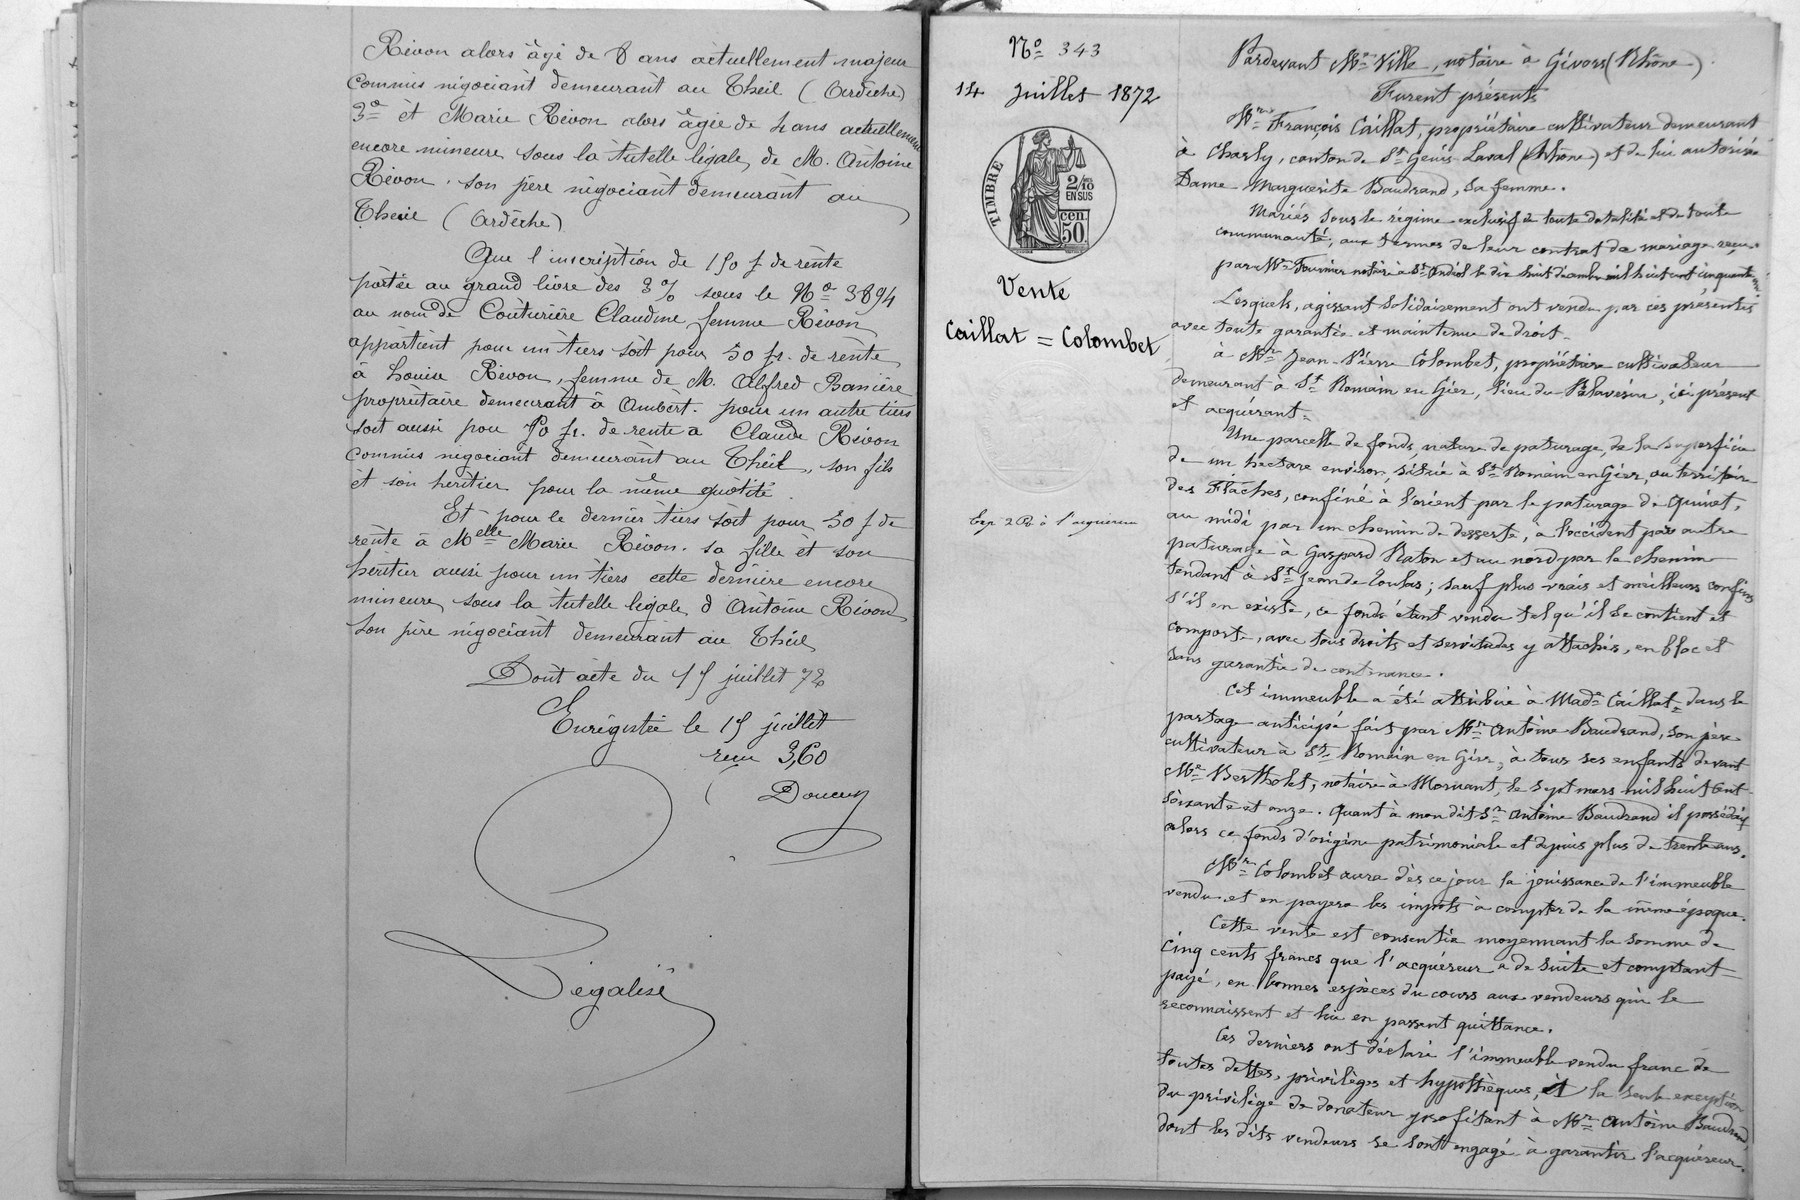 Rivon alors âgé de 8 ans actuellement majeur
commis négociant demeurant au Theil (Ardèche)
3º et Marie Rivon alors âgée de 4 ans actuellement
encore mineure sous la tutelle légale de M. Antoine
Rivon son père négociant demeurant au
Theil (Ardèche)
Que l'inscription de 150 f de rente
portée au grand livre des 3% sous le Nº 3894
au nom de Couturière Claudine femme Rivon
appartient pour un tiers soit pour 50 fr. de rente
a Louise Rivon, femme de M. Alfred Banière
propriétaire demeurant à Ambert. pour un autre tiers
soit aussi pour 50 fr. de rente a Claude Rivon
commis négociant demeurant au Theil, son fils
et son héritier pour la même quotité.
Et pour le dernier tiers soit pour 50 f de
rente à Melle Marie Rivon. sa fille et son
héritier aussi pour un tiers cette dernière encore
mineure sous la tutelle légale d'Antoine Rivon
son père négociant demeurant au Theil
Dont acte du 15 juillet 72
Enregistré le 15 juillet
reçu 3,60
Légalisé
Nº 343
14 Juillet 1872
TIMBRE
2/10 EN SUS
cen. 50
Vente
Caillat = Colombet
Exp. 2 R. à l'acquéreur
Pardevant Me Ville, notaire à Givors (Rhône).
Furent présents
Mr François Caillat, propriétaire cultivateur demeurant
à Charly, canton de St Genis-Laval (Rhône) et de lui autorisée
Dame Marguerite Baudrand, sa femme.
Mariés sous le régime exclusif de toute dotalité et de toute
communauté, aux termes de leur contrat de mariage reçu
par Me Fournier notaire à St Andéol le dix huit décembre mil huit cent cinquante
Lesquels, agissant solidairement ont vendu par ces présentes
avec toute garantie et maintenue de droit.
à Mr Jean-Pierre Colombet, propriétaire cultivateur
demeurant à St Romain en Gier, lieu du, ici présent
et acquérant.
Une parcelle de fonds, nature de paturage, de la superficie
de un hectare environ, située à St Romain en Gier, au territoire
des Flaches, confiné à l'orient par le paturage de Quinet,
au midi par un chemin de desserte, a l'occident par autre
paturage à Gaspard Raton et au nord par le chemin
tendant à St Jean de Toulas; sauf plus vrais et meilleurs confins
s'il en existe, ce fonds étant vendu tel qu'il se contient et
comporte, avec tous droits et servitudes y attachés, en bloc et
sans garantie de contenance.
Cet immeuble a été attribué à Made Caillat dans le
partage anticipé fait par Mr Antoine Baudrand, son père
cultivateur à St Romain en Gier, à tous ses enfants devant
Me Bertholet, notaire à Mornant, le sept mars mil huit cent
soixante et onze. Quant à mon dit Sr Antoine Baudrand il possédait
alors ce fonds d'origine patrimoniale et depuis plus de trente ans.
Mr Colombet aura dès ce jour la jouissance de l'immeuble
vendu. et en payera les impôts à compter de la même époque.
Cette vente est consentie moyennant la somme de
Cinq cents francs que l'acquéreur a de suite et comptant
payé, en bonnes espèces du cours aux vendeurs qui le
reconnaissent et lui en passent quittance.
Ces derniers ont déclaré l'immeuble vendu franc de
toutes dettes, privilèges et hypothèques, à la seule exception
du privilège de donateur profitant à Mr Antoine Baudrand,
dont les dits vendeurs se sont engagé à garantir l'acquéreur.